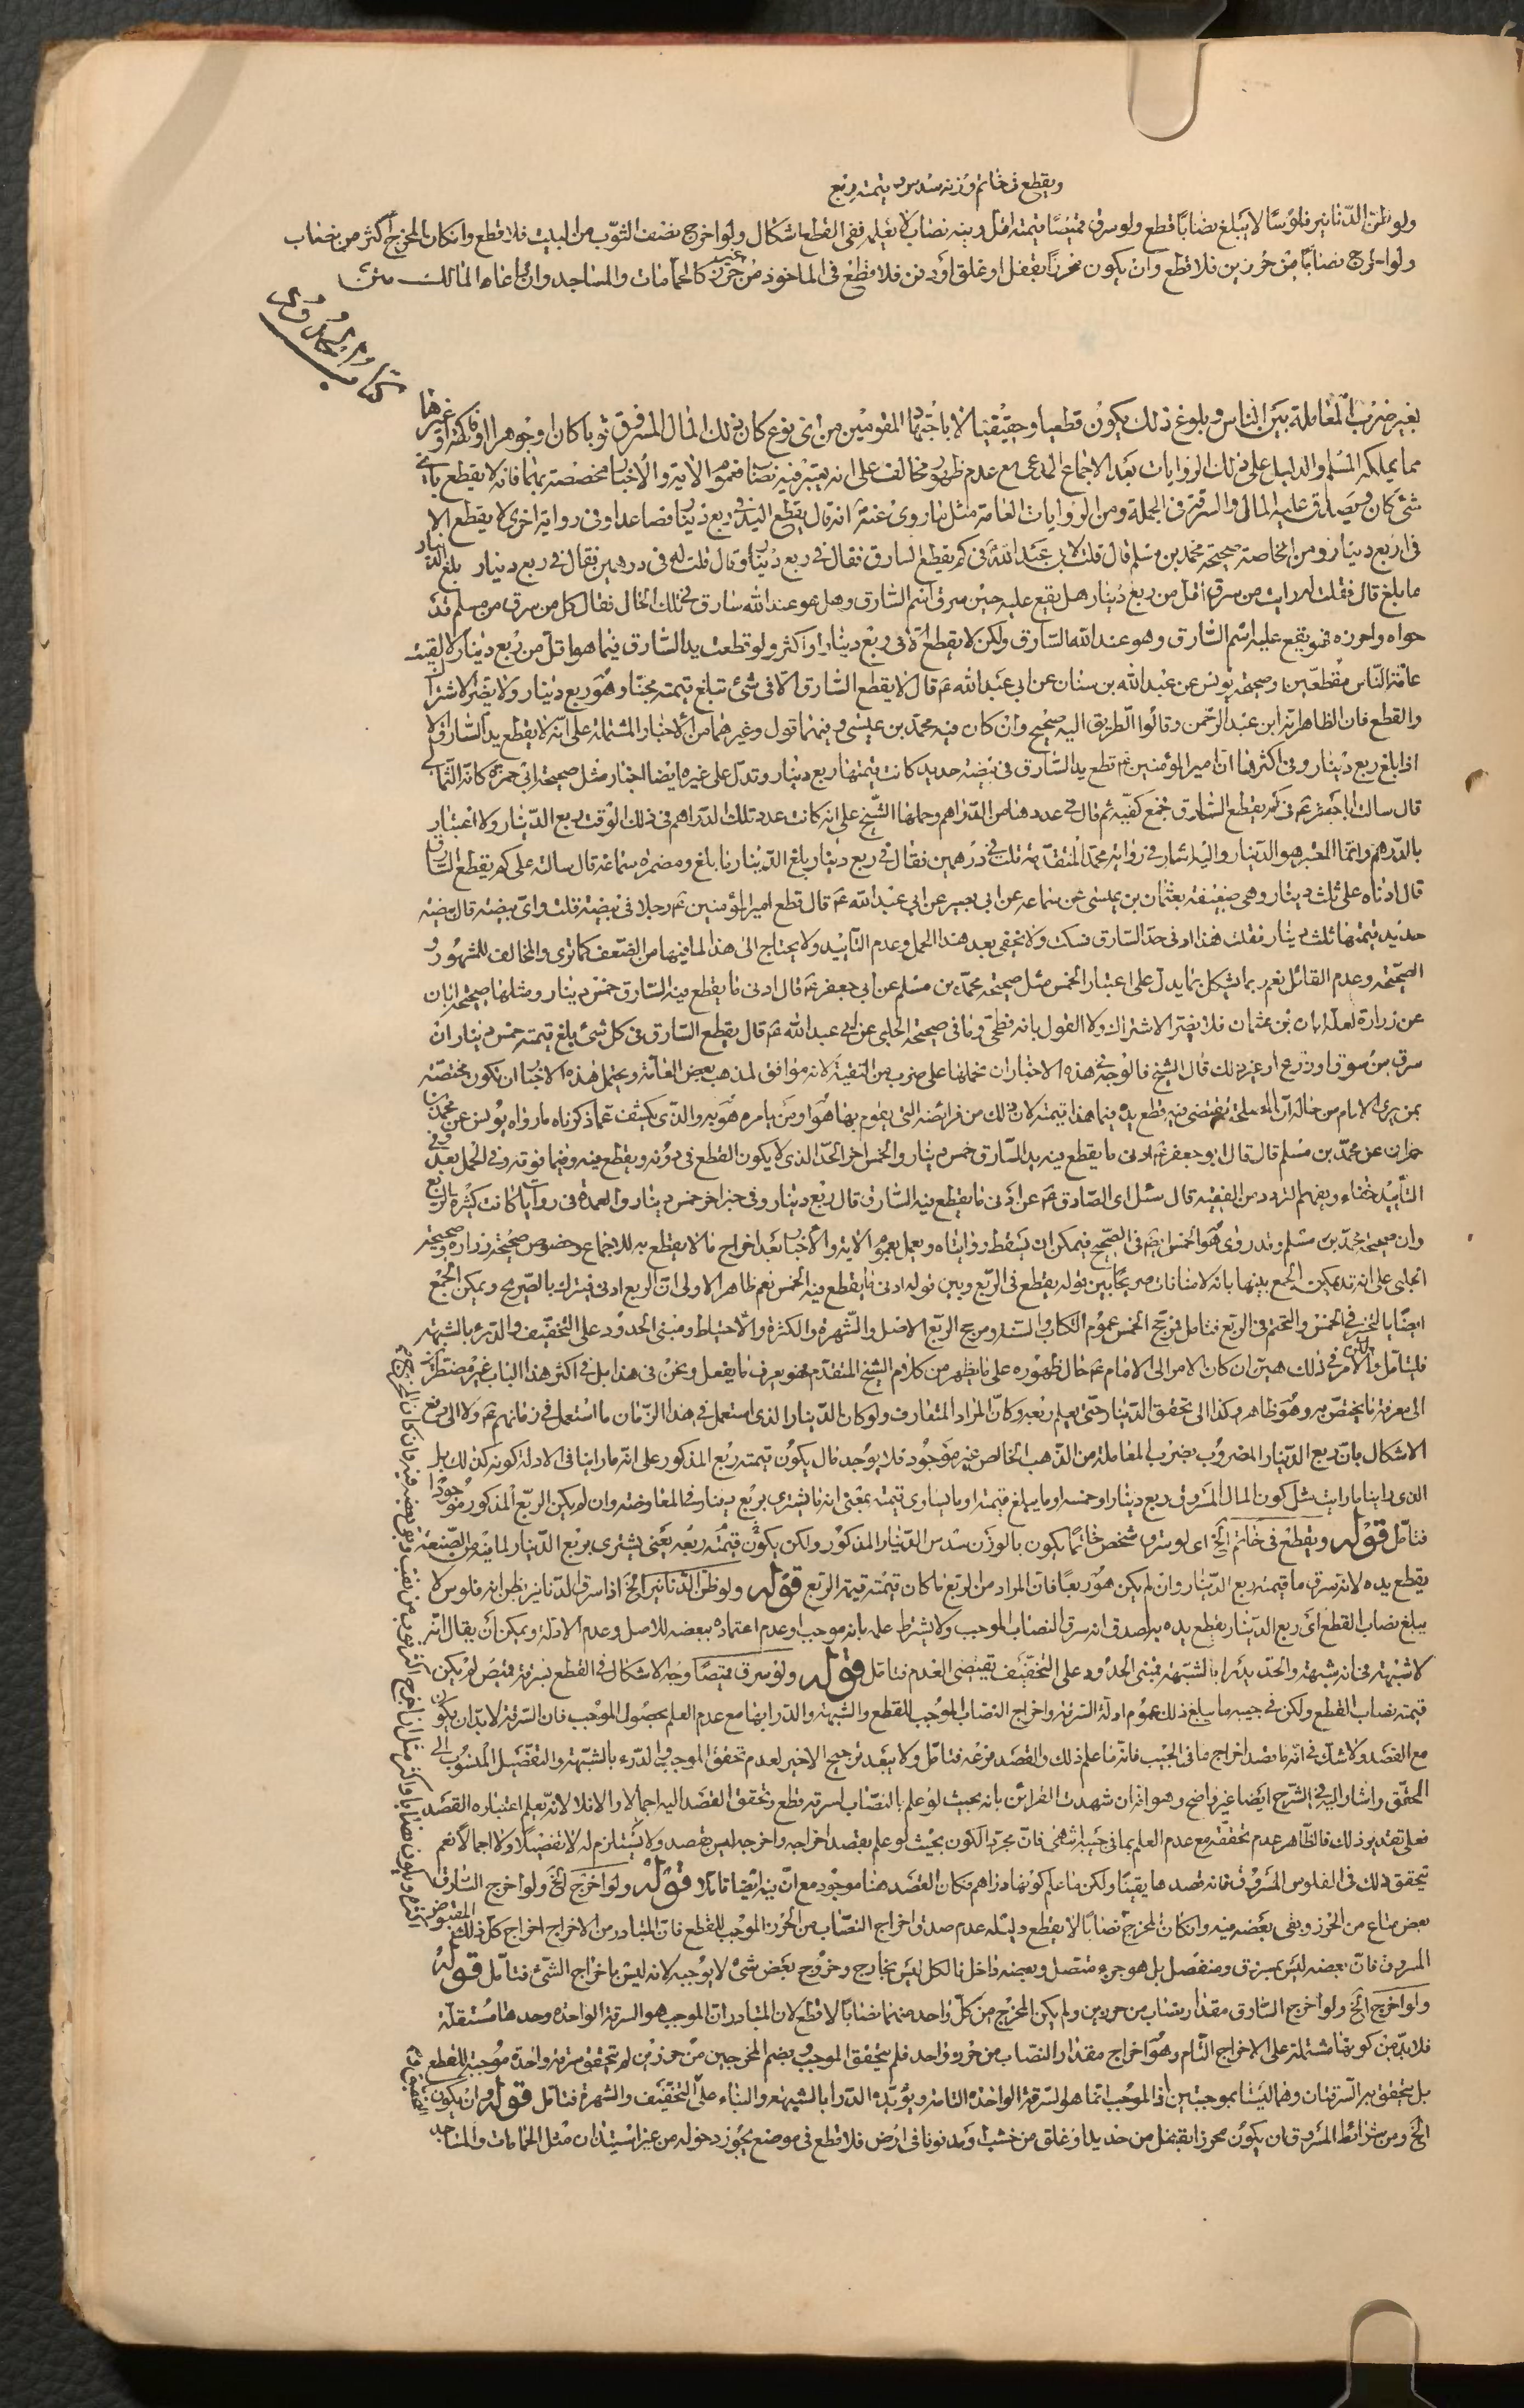 ويقطع في خاتم وزنه سدس وقيمته ربع
ولو ظن الدنانير فلوسًا لا يبلغ نصابًا قطع ولو سرق قميصًا قيمته اقل وفيه نصاب لا يعلمه ففي القطع اشكال ولو اخرج نصف الثوب من البيت فلا قطع وان كان المخرج اكثر من نصاب
ولو اخرج نصابًا من حرزين فلا قطع وان يكون محرزًا بقفل او غلق او دفن فلا قطع في الماخوذ من غير حرز كالحمامات والمساجد وان راعاه المالك
كتاب الحدود
بغير ضرب المعاملة بين الناس وبلوغ ذلك يكون قطعيا وحقيقيا لا باجتهاد المقومين من اى نوع كان ذلك المال المسروق ثوبا كان او جوهرا او فاكهة او غيرها
مما يملكه المسلم والدليل على ذلك الروايات بعد الاجماع المدعى مع عدم ظهور مخالف على انه يعتبر فيه نصاب فعموم الاية والاخبار مخصصة بهما فانه لا يقطع باى
شئ كان ويصدق عليه المال والسرقة في الجملة ومن الروايات العامة مثل ما روى عنه انه قال يقطع اليد في ربع دينار فصاعدا وفي رواية اخرى لا يقطع الا
في اربع دينار ومن الخاصة صحيحة محمد بن مسلم قال قلت لابى عبد الله في كم يقطع السارق فقال في ربع دينار قال قلت له في درهمين فقال في ربع دينار بلغ الدينار
ما بلغ قال فقلت له ارايت من سرق اقل من ربع دينار هل يقع عليه حين سرق اسم السارق وهل هو عند الله سارق في تلك الحال فقال كل من سرق من مسلم قد
حواه واحرزه فهو يقع عليه اسم السارق وهو عند الله السارق ولكن لا يقطع الا في ربع دينار او اكثر ولو قطعت يد السارق فيما هو اقل من ربع دينار لالفيت
عامة الناس مقطعين وصحيحة يونس عن عبد الله بن سنان عن ابى عبد الله ع قال لا يقطع السارق الا في شئ تبلغ قيمته مجنا وهو ربع دينار ولا يضر الاشتراك
والقطع فان الظاهر انه ابن عبد الرحمن وقالوا الطريق اليه صحيح وان كان فيه محمد بن عيسى وفيهما قول وغيرهما من الاخبار المشتملة على انه لا يقطع يد السارق الا
اذا بلغ ربع دينار وفي اكثرها ان امير المؤمنين ع قطع يد السارق في بيضة حديد كانت قيمتها ربع دينار وتدل على غيره ايضا اخبار مثل صحيحة ابى حمزة كانه الثمالى
قال سالت ابا جعفر ع في كم يقطع السارق فجمع كفيه ثم قال في عددها من الدراهم وحملها الشيخ على انه كانت عدد تلك الدراهم في ذلك الوقت ربع الدينار ولا اعتبار
بالدرهم وانما المعتبر هو الدينار واليه اشار في رواية محمد المتقدمة قلت في درهمين فقال في ربع دينار بلغ الدينار ما بلغ ومضمرة سماعة قال سالته على كم يقطع السارق
قال ادناه على ثلث دينار وهي ضعيفة بعثمان بن عيسى عن سماعة عن ابى بصير عن ابى عبد الله ع قال قطع امير المؤمنين ع رجلا في بيضة قلت واى بيضة قال بيضة
حديد قيمتها ثلث دينار فقلت هذا ادنى حد السارق فسكت ولا يخفى بعد هذا الحمل وعدم التاييد ولا يحتاج الى هذا لما فيها من الضعف كما ترى والمخالف للمشهور و
الصحيحة وعدم القائل نعم ربما يشكل بما يدل على اعتبار الخمس مثل صحيحة محمد بن مسلم عن ابى جعفر ع قال ادنى ما يقطع فيه السارق خمس دينار ومثلها صحيحة ابان
عن زرارة لعله ابان بن عثمان فلا يضر الاشتراك ولا القول بانه فطحى وما في صحيحة الحلبى عن ابى عبد الله ع قال يقطع السارق في كل شئ بلغ قيمته خمس دينار ان
سرق من سوق او زرع او غير ذلك قال الشيخ فالوجه في هذه الاخبار ان نحملها على ضرب من التقية لانه موافق لمذهب بعض العامة ويحتمل هذه الاخبار ان تكون مختصة
بمن يرى الامام من حاله ان المصلحة تقتضى فيه قطع يده فيما هذا قيمته لان ذلك من فرائضه التى يقوم بها هو او من يامره هو به والذى يكشف عما ذكرناه ما رواه يونس عن محمد بن
حمران عن محمد بن مسلم قال قال ابو جعفر ع ادنى ما يقطع فيه يد السارق خمس دينار والخمس اخر الحد الذى لا يكون القطع في دونه ويقطع فيه وفيما فوقه وفي الحمل بعد وفي
التأييد خفاء ويفهم التردد من الفقيه قال سئل اى الصادق ع عن ادنى ما يقطع فيه السارق قال ربع دينار وفي خبر اخر خمس دينار والعمدة في روايات كانت كثيرة الربع
وان صحيحة محمد بن مسلم وقد روى هو الخمس ايضا في الصحيح فيمكن ان يسقط روايتاه ويعمل بعموم الاية والاخبار بعد اخراج ما لا يقطع به للاجماع وخصوص صحيحة زرارة وصحيحة
الحلبى على انه قد يمكن الجمع بينها بانه لا منافات صريحا بين قوله يقطع في الربع وبين قوله ادنى ما يقطع فيه الخمس نعم ظاهر الاولى ان الربع ادنى فيترك بالصريح ويمكن الجمع
ايضًا بالتخيير في الخمس والتحتم في الربع فتامل مرجح الخمس عموم الكتاب والسنة ومرجح الربع الاصل والشهرة والكثرة والاحتياط ومبنى الحدود على التخفيف والدرء بالشبهة
فليتامل والامر في ذلك هين ان كان الامر الى الامام ع حال ظهوره على ما يظهر من كلام الشيخ المتقدم فهو يعرف ما يفعل ونحن في هذا بل في اكثر هذا الباب غير مضطرين
الى معرفة ما يختص به وهو ظاهر وكذا الى تحقق الدينار حتى يعلم ربعه وكان المراد المتعارف ولو كان الدينار الذى استعمل في هذا الزمان ما استعمل في زمانهم ع ولا الى دفع
الاشكال بان ربع الدينار المضروب بضرب المعاملة من الذهب الخالص غير موجود فلا يوجد مال يكون قيمته ربع المذكور على انه ما راينا في الادلة كونه كذلك بل
الذى راينا ما رايت مثل كون المال المسروق ربع دينار او خمسه او ما يبلغ قيمته او ما يساوى قيمته بمعنى انه ما يشترى بربع دينار في المعاوضة وان لم يكن الربع المذكور موجودا
فتامل قوله ويقطع في خاتم الخ اى لو سرق شخص خاتمًا يكون بالوزن سدس الدينار المذكور ولكن يكون قيمته ربعه يعنى يشترى بربع الدينار لما فيه من الصنعة
يقطع يده لانه سرق ما قيمته ربع الدينار وان لم يكن هو ربعًا فان المراد من الربع ما كان قيمته قيمة الربع قوله ولو ظن الدنانير الخ اذا سرق الدنانير بظن انه فلوس لا
يبلغ نصاب القطع اى ربع الدينار يقطع يده لصدق انه سرق النصاب الموجب ولا يشترط علمه بانه موجب وعدم اعتماده ببعضه للاصل وعدم الادلة ويمكن أن يقال انه
لا شبهة في انه شبهة والحد يدرا بالشبهة فمبنى الحدود على التخفيف يقتضى العدم فتامل قوله ولو سرق قميصًا وجه الاشكال في القطع بسرقة قميص لم يكن
قيمته نصاب القطع ولكن في جيبه ما يبلغ ذلك عموم ادلة السرقة واخراج النصاب الموجب للقطع والشبهة والدرا بها مع عدم العلم بحصول الموجب فان السرقة لا بد ان يكون
مع القصد ولا شك في انه ما قصد اخراج ما في الجيب فانه ما علم ذلك والقصد فرعه فتامل ولا يبعد ترجيح الاخير لعدم تحقق الموجب والدرء بالشبهة والتفصيل المنسوب الى
المحقق واشار اليه في الشرح ايضا غير واضح وهو انه ان شهدت القرائن بانه بحيث لو علم بالنصاب لسرقه قطع وتحقق القصد اليه اجمالا والا فلا لانه يعلم اعتباره القصد
فعلى تقدير ذلك فالظاهر عدم تحققه مع عدم العلم بما في جيبه انتهى فان مجرد الكون بحيث لو علم بقصد اخراجه واخرجه ليس بقصد ولا يستلزم له لا تفضيلا ولا اجمالا نعم
تحقق ذلك في الفلوس المسروق فانه قصدها يقينا ولكن ما علم كونها دراهم فكان القصد هنا موجود مع ان فيه ايضا تاملا قوله ولو اخرج الخ ولو اخرج السارق
بعض متاع من الحرز وبقى بعضه فيه وان كان المخرج نصابًا لا يقطع دليله عدم صدق اخراج النصاب من الحرز الموجب للقطع فان المتبادر من الاخراج اخراج كل ذلك المقبوض
المسروق فان بعضه ليس بسرق ومنفصل بل هو جزء متصل وبعضه داخل فالكل ليس بخارج وخروج بعض شئ لا يوجبه لانه ليس باخراج الشئ فتامل قوله
ولو اخرج الخ ولو اخرج السارق مقدار نصاب من حرزين ولم يكن المخرج من كل واحد منهما نصابًا لا قطع لان المتبادر ان الموجب هو السرقة الواحدة وحدها مستقلة
فلا بد من كونها مشتملة على الاخراج التام وهو اخراج مقدار النصاب من حرز واحد فلم يتحقق الموجب وبضم المخرجين من حرزين لم يتحقق سرقة واحدة موجبة للقطع
بل يتحقق به السرقتان وهما ليستا بموجبتين اذ الموجب انما هو السرقة الواحدة التامة ويؤيده الدرا بالشبهة والبناء على التخفيف والشهرة فتامل قوله وان يكون
الخ ومن شرائط المسروق ان يكون محرزا بقفل من حديد او غلق من خشب او مدفونا في ارض فلا قطع في موضع يجوز دخوله من غير استيذان مثل الحمامات والمساجد